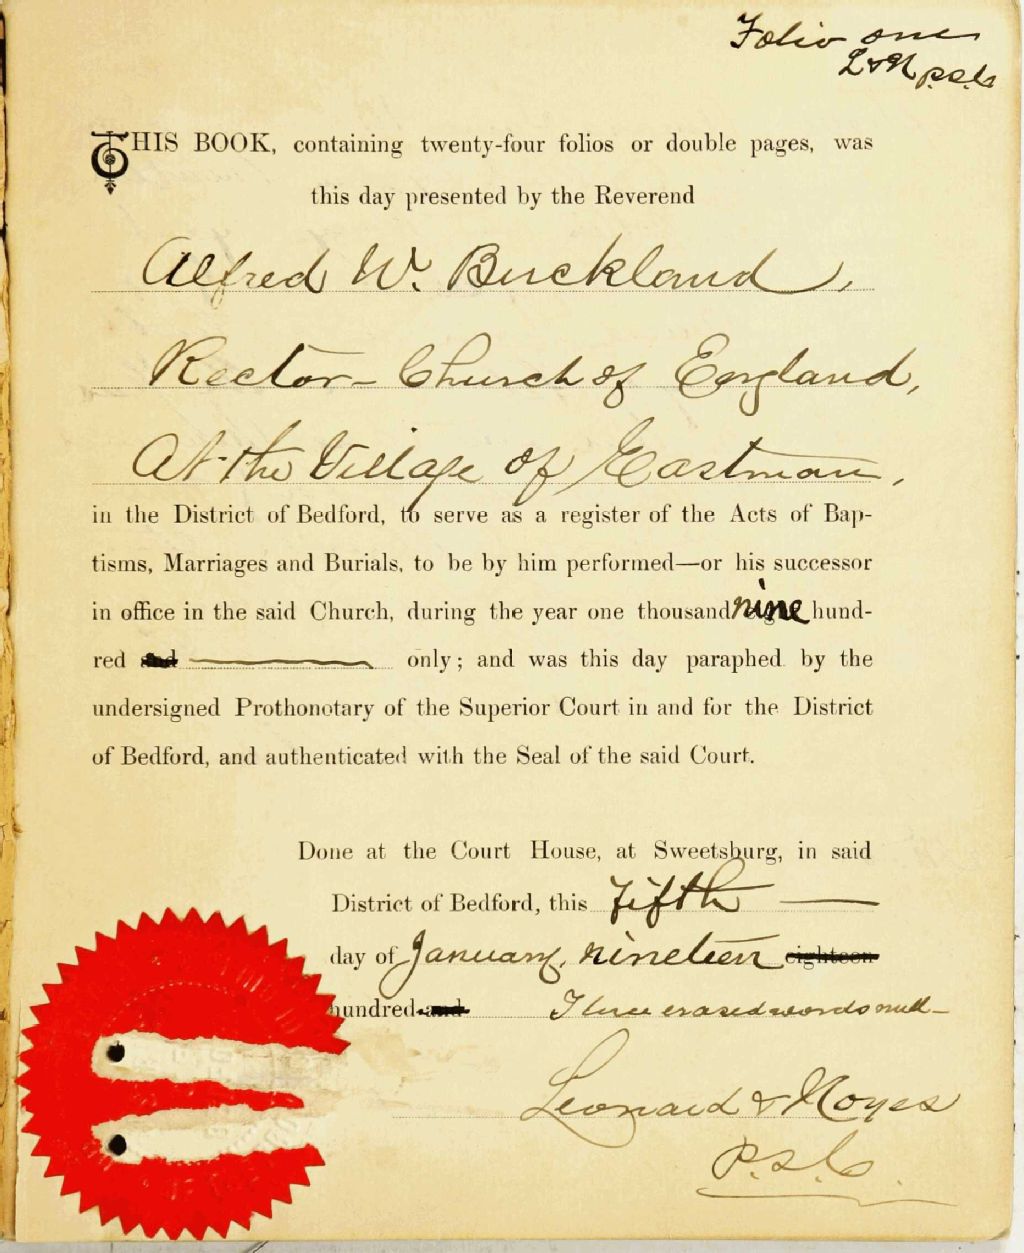 Folio one
L & N p.s.c
THIS BOOK, containing twenty-four folios or double pages, was
this day presented by the Reverend
Alfred W. Buckland,
Rector – Church of England,
At the Village of Eastman,
in the District of Bedford, to serve as a register of the Acts of Bap-
tisms, Marriages and Burials, to be by him performed—or his successor
in office in the said Church, during the year one thousand nine hund-
red and only; and was this day paraphed by the
undersigned Prothonotary of the Superior Court in and for the District
of Bedford, and authenticated with the Seal of the said Court.
Done at the Court House, at Sweetsburg, in said
District of Bedford, this fifth
day of January, nineteen eighteen
hundred and Three erased words null –
Leonard & Noyes
P.S.C.